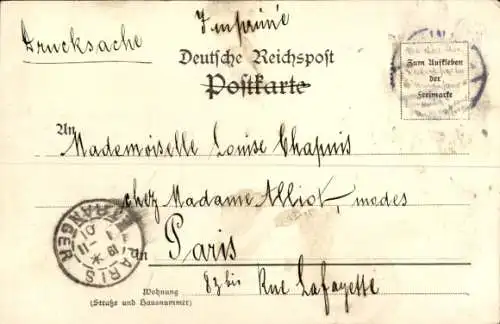 Imprimé
Drucksache
Deutsche Reichspost
Postkarte
Zum Aufkleben
der
Freimarke
An
Mademoiselle Louise Chapuis
chez Madame Alliot, modes
in Paris
83 bis Rue Lafayette
Wohnung
(Straße und Hausnummer)
PARIS
ETRANGER